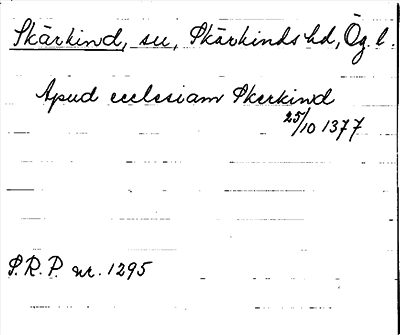 Skärkind, sn, Skärkinds hd, Ög. l.
Apud ecclesiam Skerkind
25/10 1377
S.R.P. nr. 1295